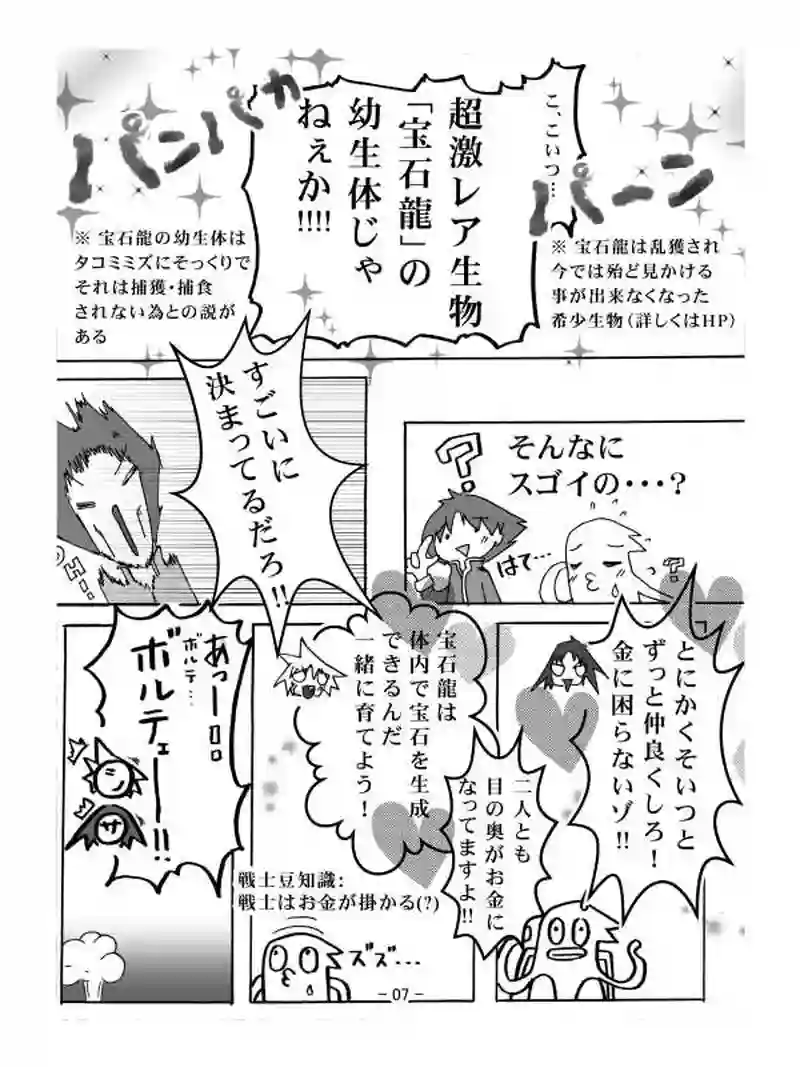 こ、こいつ…
超激レア生物
「宝石龍」の
幼生体じゃ
ねぇか!!!!
パンパカ
パーン
※ 宝石龍は乱獲され
今では殆ど見かける
事が出来なくなった
希少生物（詳しくはHP）
※ 宝石龍の幼生体は
タコミミズにそっくりで
それは捕獲・捕食
されない為との説が
ある
そんなに
スゴイの・・・？
?
はて…
?
すごいに
決まってるだろ!!
とにかくそいつと
ずっと仲良くしろ！
金に困らないゾ!!
二人とも
目の奥がお金に
なってますよ!!
宝石龍は
体内で宝石を生成
できるんだ
一緒に育てよう！
戦士豆知識：
戦士はお金が掛かる(?)
ズズ・・・
あっー!!
ボルテ…
ボルテェー!!
サ
－07－